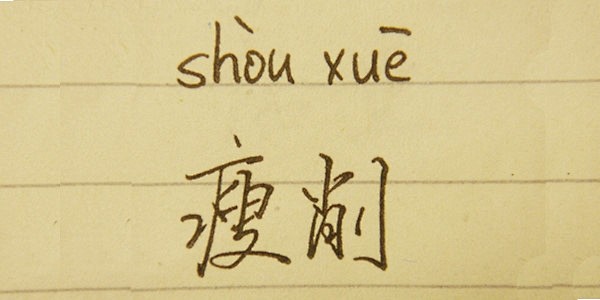 shòu xuē
瘦削